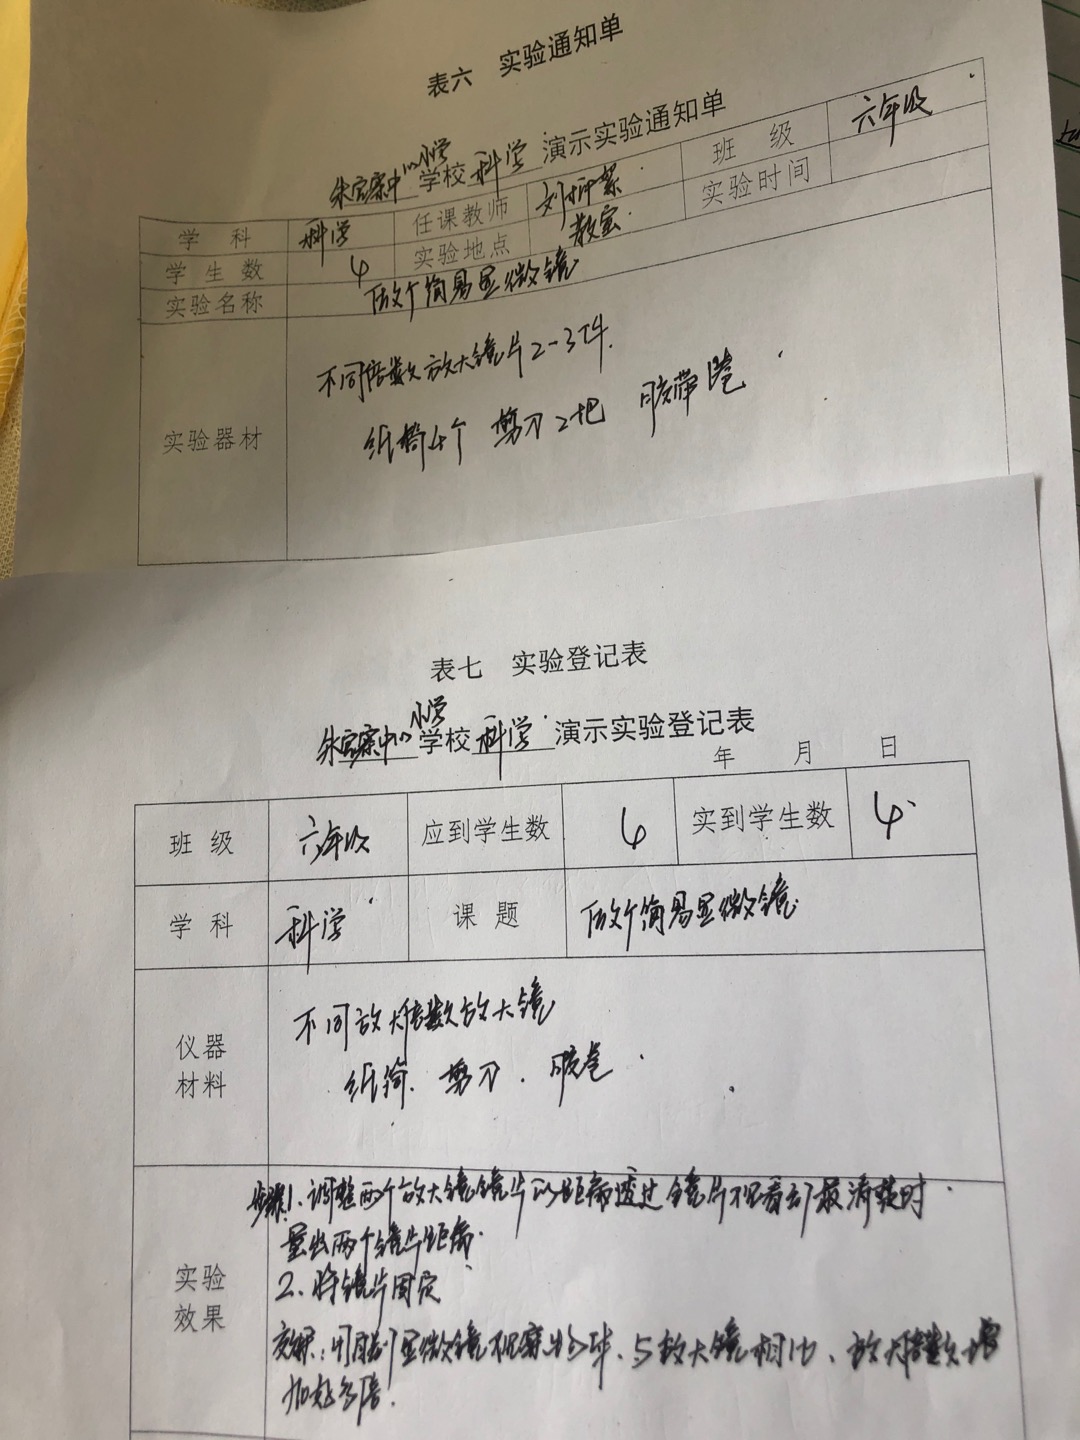 表六 实验通知单
小学
学校 科学 演示实验通知单
学 科 科学 任课教师 班 级 六年级
学 生 数 4 实验地点 教室 实验时间
实验名称 做个简易显微镜
实验器材
不同倍数放大镜片2-3块.
纸筒4个 剪刀2把 胶带1卷
表七 实验登记表
小学
学校 科学 演示实验登记表
年 月 日
班 级 六年级 应到学生数 4 实到学生数 4
学 科 科学 课 题 做个简易显微镜
仪器
材料
不同放大倍数放大镜
纸筒. 剪刀. 胶卷
实验
效果
步骤1、调整两个放大镜镜片的距离透过镜片观看到最清楚时
量出两个镜片距离.
2、将镜片固定
效果:用自制显微镜观察物体、与放大镜相比、放大倍数增
加好多倍.